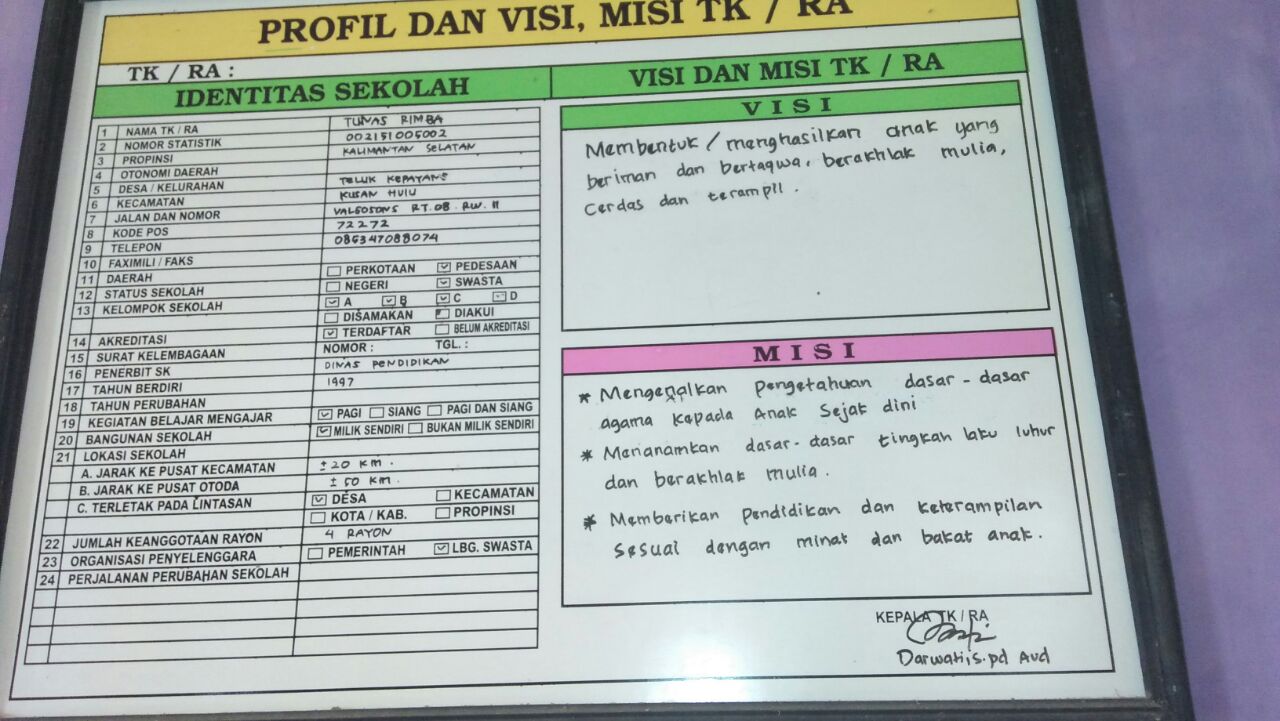 PROFIL DAN VISI, MISI TK / RA
TK / RA :
IDENTITAS SEKOLAH
1 NAMA TK / RA TUNAS RIMBA
2 NOMOR STATISTIK 002151005002
3 PROPINSI KALIMANTAN SELATAN
4 OTONOMI DAERAH
5 DESA / KELURAHAN TELUK KEPAYANG
6 KECAMATAN KUSAN HULU
7 JALAN DAN NOMOR RT.08. RW. II
8 KODE POS 72272
9 TELEPON
10 FAXIMILI / FAKS
11 DAERAH PERKOTAAN PEDESAAN
12 STATUS SEKOLAH NEGERI SWASTA
13 KELOMPOK SEKOLAH A B C D
DISAMAKAN DIAKUI
14 AKREDITASI TERDAFTAR BELUM AKREDITASI
15 SURAT KELEMBAGAAN NOMOR : TGL. :
16 PENERBIT SK DINAS PENDIDIKAN
17 TAHUN BERDIRI 1997
18 TAHUN PERUBAHAN
19 KEGIATAN BELAJAR MENGAJAR PAGI SIANG PAGI DAN SIANG
20 BANGUNAN SEKOLAH MILIK SENDIRI BUKAN MILIK SENDIRI
21 LOKASI SEKOLAH
A. JARAK KE PUSAT KECAMATAN ± 20 KM.
B. JARAK KE PUSAT OTODA ± 50 KM.
C. TERLETAK PADA LINTASAN DESA KECAMATAN
KOTA / KAB. PROPINSI
22 JUMLAH KEANGGOTAAN RAYON 4 RAYON
23 ORGANISASI PENYELENGGARA PEMERINTAH LBG. SWASTA
24 PERJALANAN PERUBAHAN SEKOLAH
VISI DAN MISI TK / RA
VISI
Membentuk / menghasilkan anak yang
beriman dan bertaqwa, berakhlak mulia,
Cerdas dan terampil.
MISI
* Mengenalkan pengetahuan dasar - dasar
agama kepada Anak Sejak dini
* Menanamkan dasar - dasar tingkah laku luhur
dan berakhlak mulia.
* Memberikan pendidikan dan keterampilan
Sesuai dengan minat dan bakat anak.
KEPALA TK / RA
Darwati, S.pd Aud